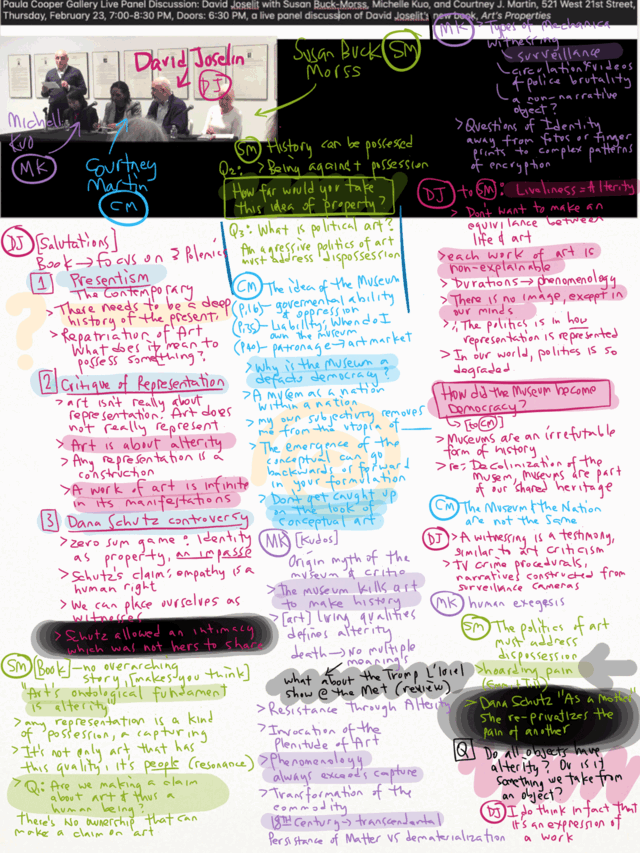 Paula Cooper Gallery Live Panel Discussion: David Joselit with Susan Buck-Morss, Michelle Kuo, and Courtney J. Martin, 521 West 21st Street,
Thursday, February 23, 7:00-8:30 PM, Doors: 6:30 PM, a live panel discussion of David Joselit's new book, Art's Properties
David Joselin
DJ
Susan Buck
Morss
SM
Michell
Kuo
MK
Courtney
Martin
CM
DJ [Salutations]
Book → focus on 3 Polemics
1 Presentism
The Contemporary
> There needs to be a deep
history of the present,
> Repatriation of Art
What does it mean to
possess something?
2 Critique of Representation
> art isn't really about
representation. Art does
not really represent
> Art is about alterity
> Any representation is a
construction
> A work of art is infinite
in its manifestations
3 Dana Schutz controversy
> zero sum game: Identity
as property, an impasse
> Schutz's claim: empathy is a
human right
> We can place ourselves as
witnesses
> Schutz allowed an intimacy
which was not hers to share
SM [Book] - no overarching
story, [makes you think]
"Art's ontological fundament
is alterity"
> any representation is a kind
of possession, a capturing
> It's not only art that has
this quality, it's people (resonance)
> Q: Are we making a claim
about art & thus a
human being?
There's no ownership that can
make a claim on art
SM History can be possessed
Q2: > Being against possession
How far would you take
this idea of property?
Q3: What is political art?
An agressive politics of art
must address dispossession
CM The idea of the Museum
(P.16) - governmental ability
of oppression
(P.35) - Liability; When do I
own the museum
(P40) - patronage → art market
> Why is the museum a
defacto democracy?
> A museum as a nation
within a nation
> my own subjectivity removes
me from the utopia of
> The emergence of the
conceptual can go
backwards or forward
in your formulation
> Dont get caught up
on the look of
conceptual art
MK [Kudos]
Origin myth of the
museum & critic
> The museum kills art
to make history
> [art] living qualities
defines alterity
death → No multiple
meaning
what about the Tromp L'loiel
show @ the Met (review)
> Resistance Through Alterity
> Invocation of the
Plenitude of Art
> Phenomenology
always exceeds capture
> Transformation of the
commodity
18th Century → transcendental
Persistance of Matter VS dematerialization
MK > Types of Mechanica
witnessing
surveillance
circulation of videos
of police brutality
a non-narrative
object?
> Questions of Identity
away from fotos or finger
prints to complex patterns
of encryption
DJ to SM: Livaliness = Alterity
> Don't want to make an
equivilance between
life & art
> each work of art is
non-explainable
> Durations → phenomenology
> There is no image, except in
our minds
> ∴ The politics is in how
representation is represented
> In our world, politics is so
degraded
How did the Museum become
Democracy?
[to CM]
> Museums are an irrefutable
form of history
> re: Decolinization of the
musem, museums are part
of our shared heritage
CM The Museum & the Nation
are not the same
DJ > A witnessing is a testimony,
similar to art criticism
> TV crime procedurals,
narratives constructed from
surveilance cameras
MK > human exegesis
SM The politics of art
must address
dispossession
> hoarding pain
> Dana Schutz "As a mother
She re-privatizes the
pain of another
Q Do all objects have
alterity? Or is it
something we take from
an object?
DJ I do think in fact that
it's an expression of
a work